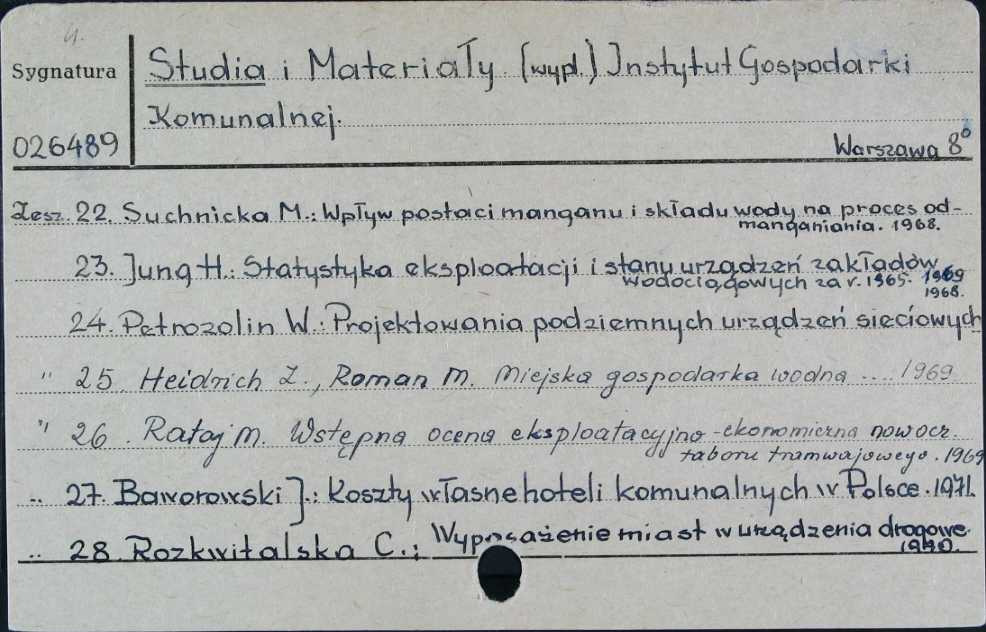 4.
Sygnatura
Studia i Materiały (wyd.) Instytut Gospodarki
Komunalnej.
026489
Warszawa 8°
Zesz. 22. Suchnicka M.: Wpływ postaci manganu i składu wody na proces od-
manganiania. 1968.
23. Jung H.: Statystyka eksploatacji i stanu urządzeń zakładów
wodociągowych za r. 1965. 1969
1968.
24. Petrozolin W.: Projektowania podziemnych urządzeń sieciowych
" 25. Heidrich Z., Roman M. Miejska gospodarka wodna .... 1969
" 26. Rataj M. Wstępna ocena eksploatacyjno-ekonomiczna nowocz.
taboru tramwajowego. 1969
.. 27. Baworowski J.: Koszty własne hoteli komunalnych w Polsce. 1971.
.. 28. Rozkwitalska C.: Wyposażenie miast w urządzenia drogowe.